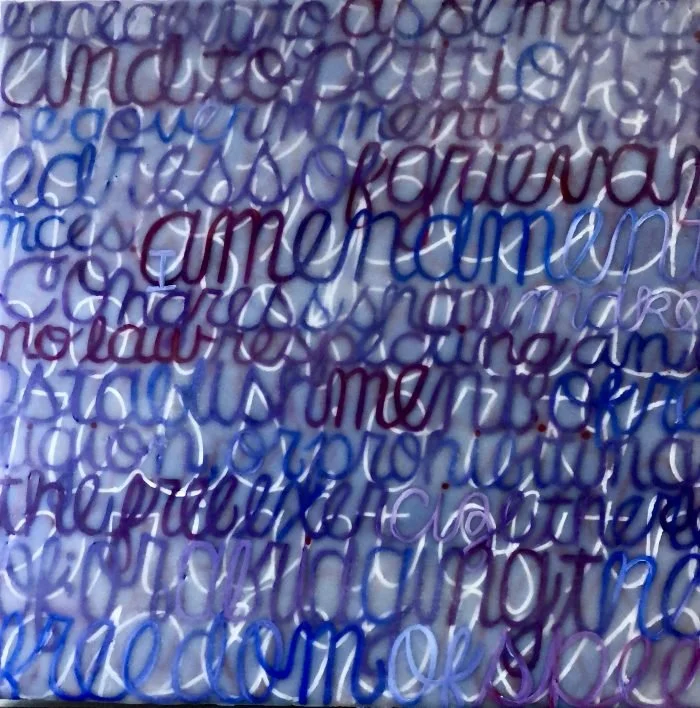 eaceably to assemble
and to petition t
he government for a r
edress of grievan
nces. amendment
I
Congress shall make
no law respecting an
establishment of re
ligion, or prohibiting
the free exercise there
of; or abridging the
freedom of spee